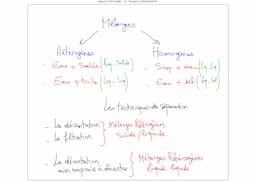 Mélanges
Hétérogènes
Homogènes
- Eau + Sable (Liq-Solide)
- Sirop + eau (Liq-Liq)
- Eau + huile (Liq-Liq)
- Eau + sel (Liq-Sol)
Les techniques de séparation
- La décantation
- La filtration
Mélanges Hétérogènes
Solide/liquide
- La décantation
avec ampoule à décanter
Mélanges Hétérogènes
liquide-liquide